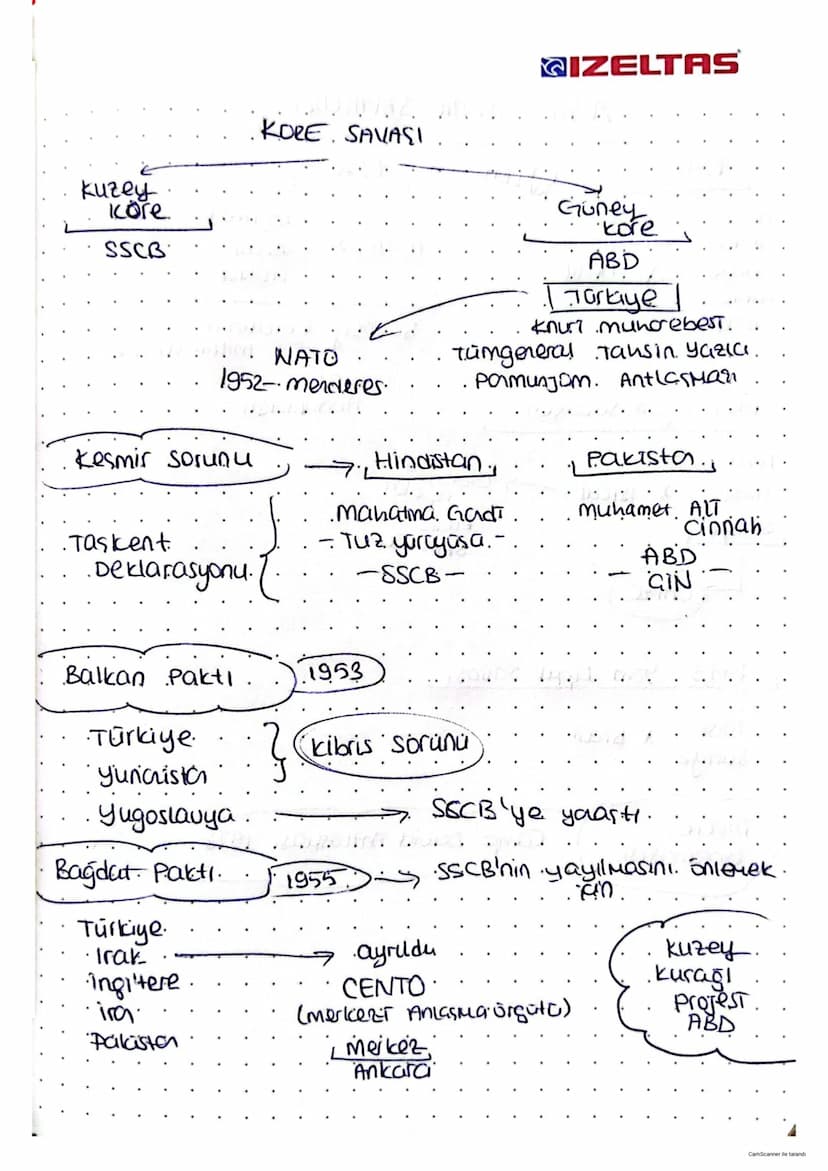 IZELTAS
KORE SAVAŞI
Kuzey
Kore
SSCB
Güney
Kore
ABD
Türkiye
NATO
1952- menderes
Knuri muharebesi
Tümgeneral Tahsin Yazıcı
Panmunjom Antlaşması
Keşmir Sorunu
Hindistan
Pakistan
Taşkent
Deklarasyonu
Mahatma Gandi
- Tuz yürüyüşü -
- SSCB -
Muhamet Ali
Cinnah
ABD
- ÇİN -
Balkan Paktı
1953
Türkiye
Yunanistan
Kıbrıs Sorunu
Yugoslavya
SSCB'ye yanaştı
Bağdat Paktı
1955
SSCB'nin yayılmasını önlemek
için
Türkiye
Irak
ayrıldı
İngiltere
İran
Pakistan
CENTO
(merkezi Anlaşma Örgütü)
Merkez
Ankara
Kuzey
Kuşağı
Projesi
ABD
CamScanner ile tarandı